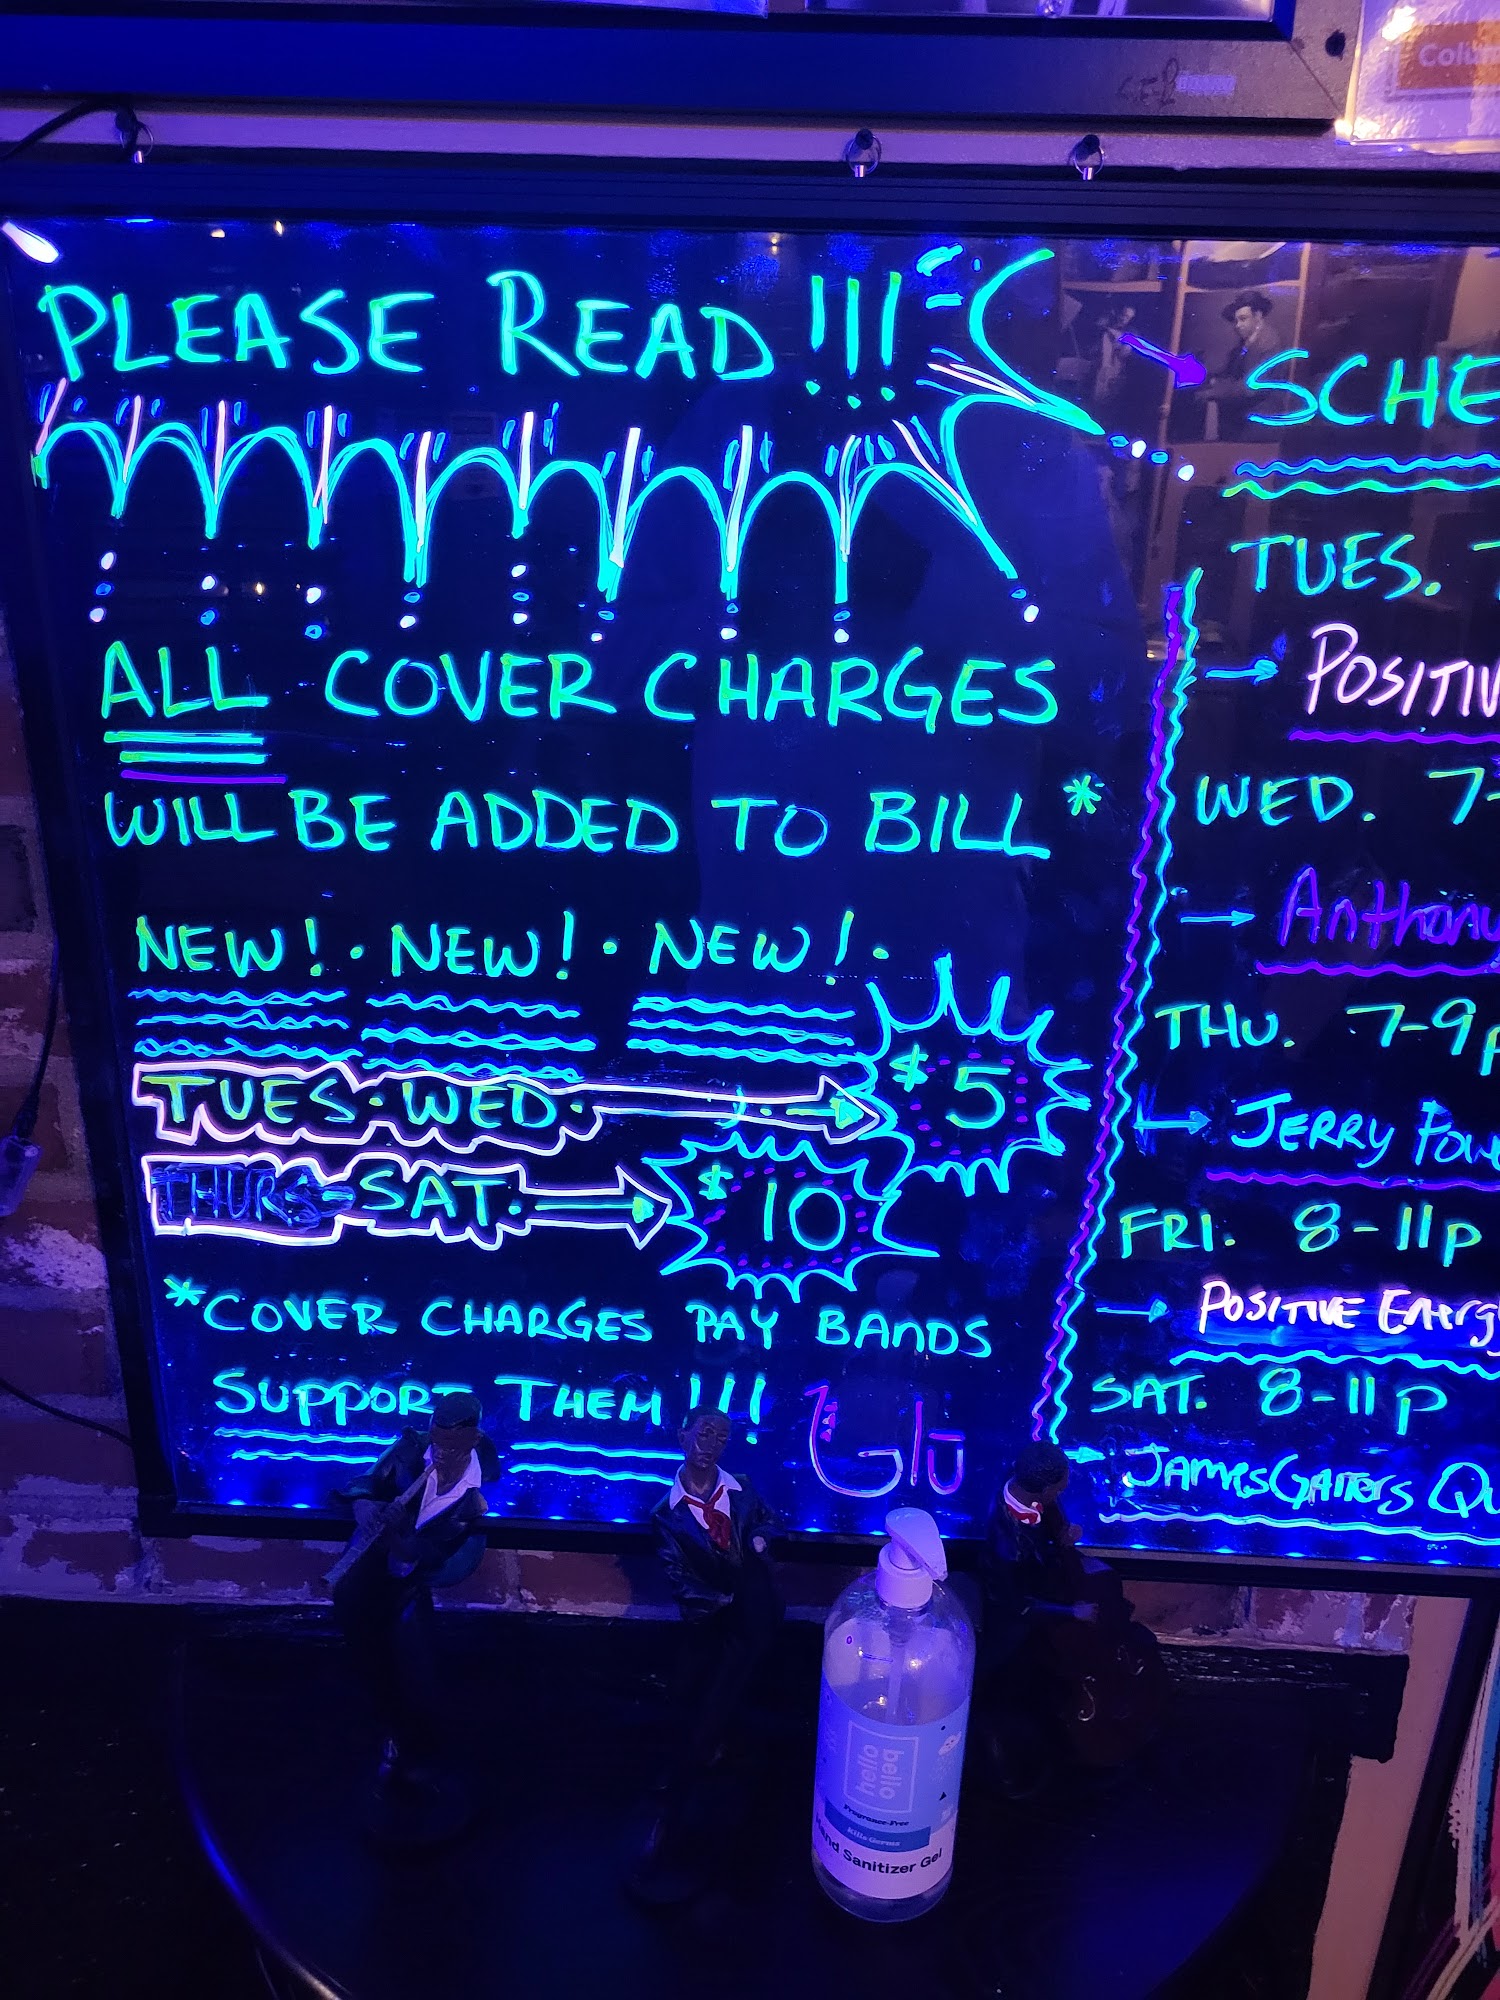 Colum
PLEASE READ!!!
ALL COVER CHARGES
WILL BE ADDED TO BILL *
NEW! · NEW! · NEW! ·
TUES · WED · $5
THURS - SAT. $10
*COVER CHARGES PAY BANDS
SUPPORT THEM!!!
SCHE
TUES. 7
POSITIV
WED. 7-
Anthony
THU. 7-9p
JERRY POW
FRI. 8-11p
POSITIVE Energy
SAT. 8-11p
JAMES GAITERS QU
hello
bello
Fragrance-Free
Kills Germs
Hand Sanitizer Gel